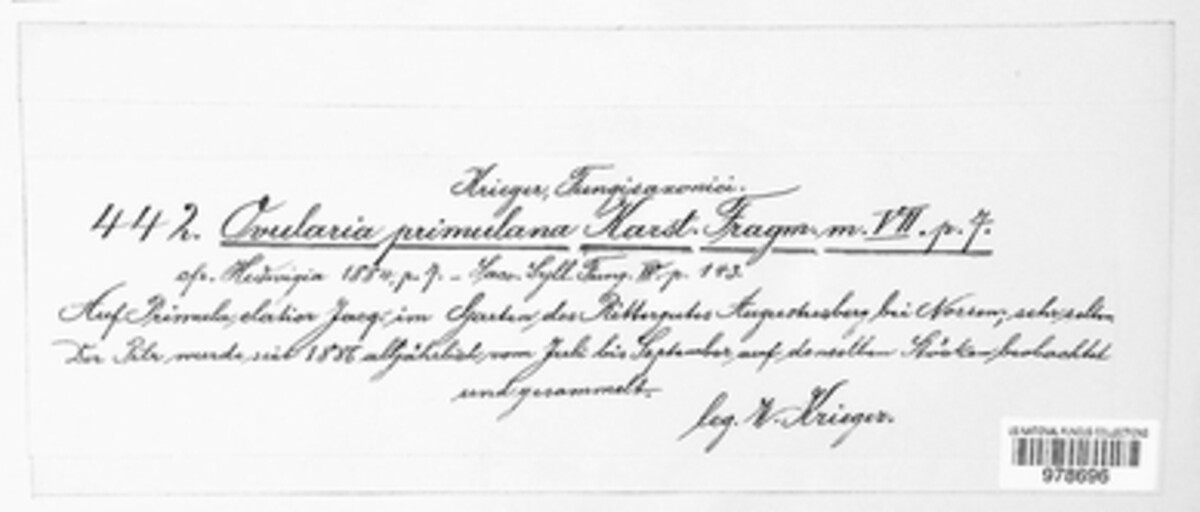 Krieger, Fungi saxonici.
442. Ovularia primulana Karst. Fragm. m. VII. p. 7.
cfr. Hedwigia 1884, p. 7. – Sacc. Syll. Fung. IV. p. 143.
Auf Primula elatior Jacq. im Garten des Rittergutes Augustusberg bei Nossen, sehr selten
Der Pilz wurde seit 1886 alljährlich vom Juli bis September auf denselben Stöcken beobachtet
und gesammelt.
leg. W. Krieger.
US NATIONAL FUNGUS COLLECTIONS
978696